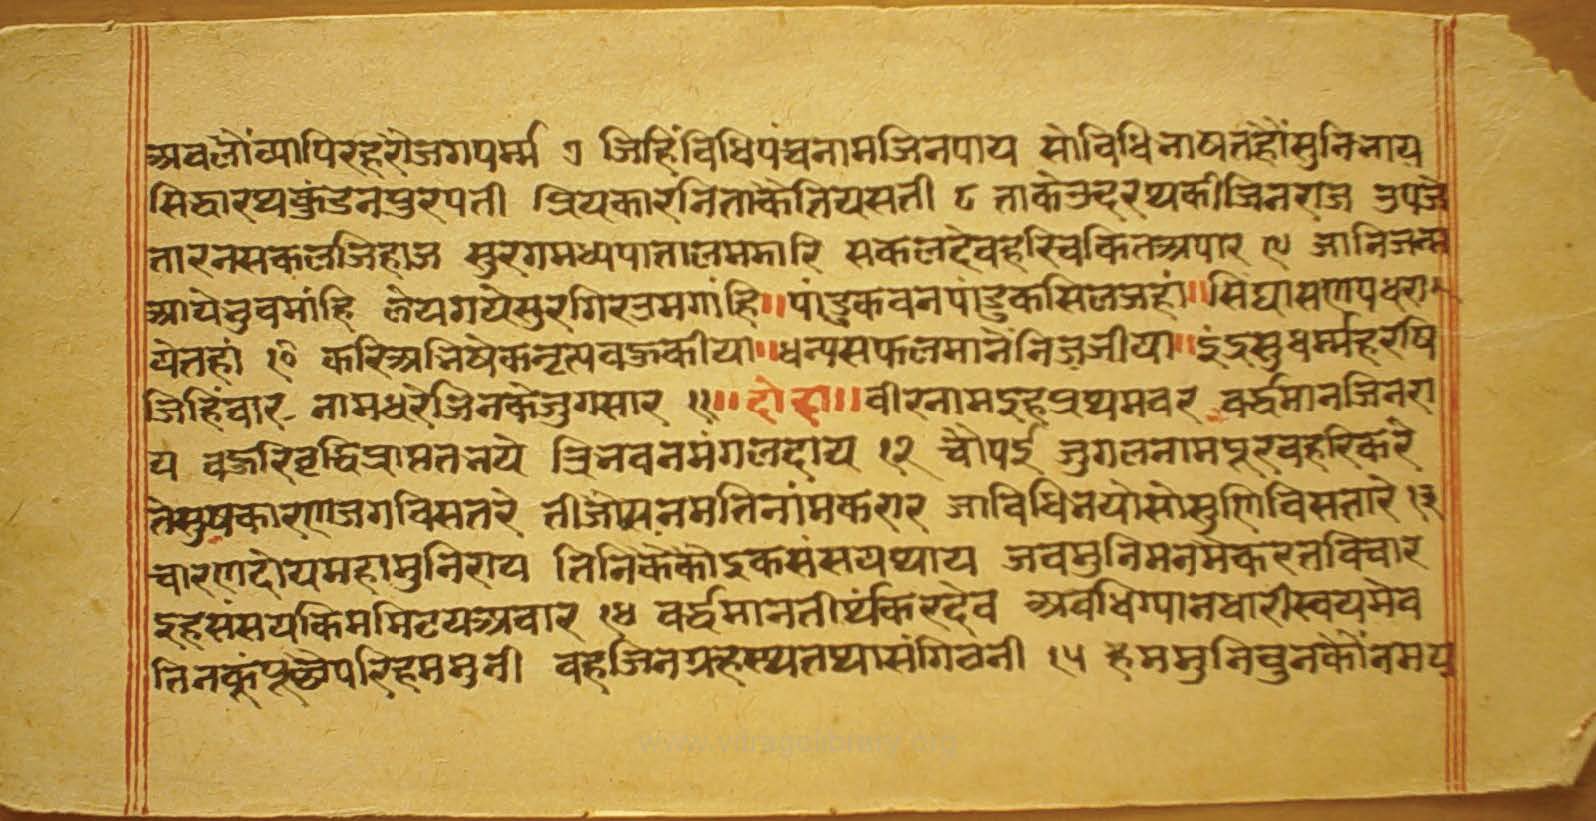 अवलोंव्यापिरहरोजगपर्म्म ७ जिहिंविधिपंचनामजिनपाय सोविधिनाषतहौंसुनिनाय
सिद्धारथकुंडनपुरपती प्रियकारनिताकेतियसती ८ ताकेउदरथकीजिनराज उपजे
तारनसकलजिहाज सुरगमध्यपातालमझारि सकलदेवहरिचकितअपार ९ जानिजन्म
आयेनुवमांहि लेयगयेसुरगिरउमगांहि॥पांडुकवनपांडुकसिलजहां॥सिंघासणपधरा
येतहां १० करिअनिषेकनृत्यवऊकीयो॥धन्यसफलमानैंनिजजीयो॥इंद्रसुधर्म्महरषि
जिहिंवार नामधरेजिनकेजुगसार ११॥दोहा॥वीरनामइहप्रथमवर वर्द्धमानजिनरा
य वऊरिवृद्धिप्राप्ततनये त्रिनवनमंगलदाय १२ चौपई जुगलनामपूरवहरिकरे
तेसुषकारणजगविसतरे तीजोसनमतिनांमकरार जाविधिनयोसोसुणिविसतारे १३
चारणदोयमहामुनिराय तिनिकेकोइकसंसयथाय जवमुनिमनमेकरतविचार
इहसंसयकिममिटयअवार १४ वर्द्धमानतीर्थंकरदेव अवधिग्यानधारीस्वयमेव
तिनकूंपूछेपरिहममुनी वहजिनग्रहस्थतथासंगिवनी १५ हममुनिवुनकौंनमय